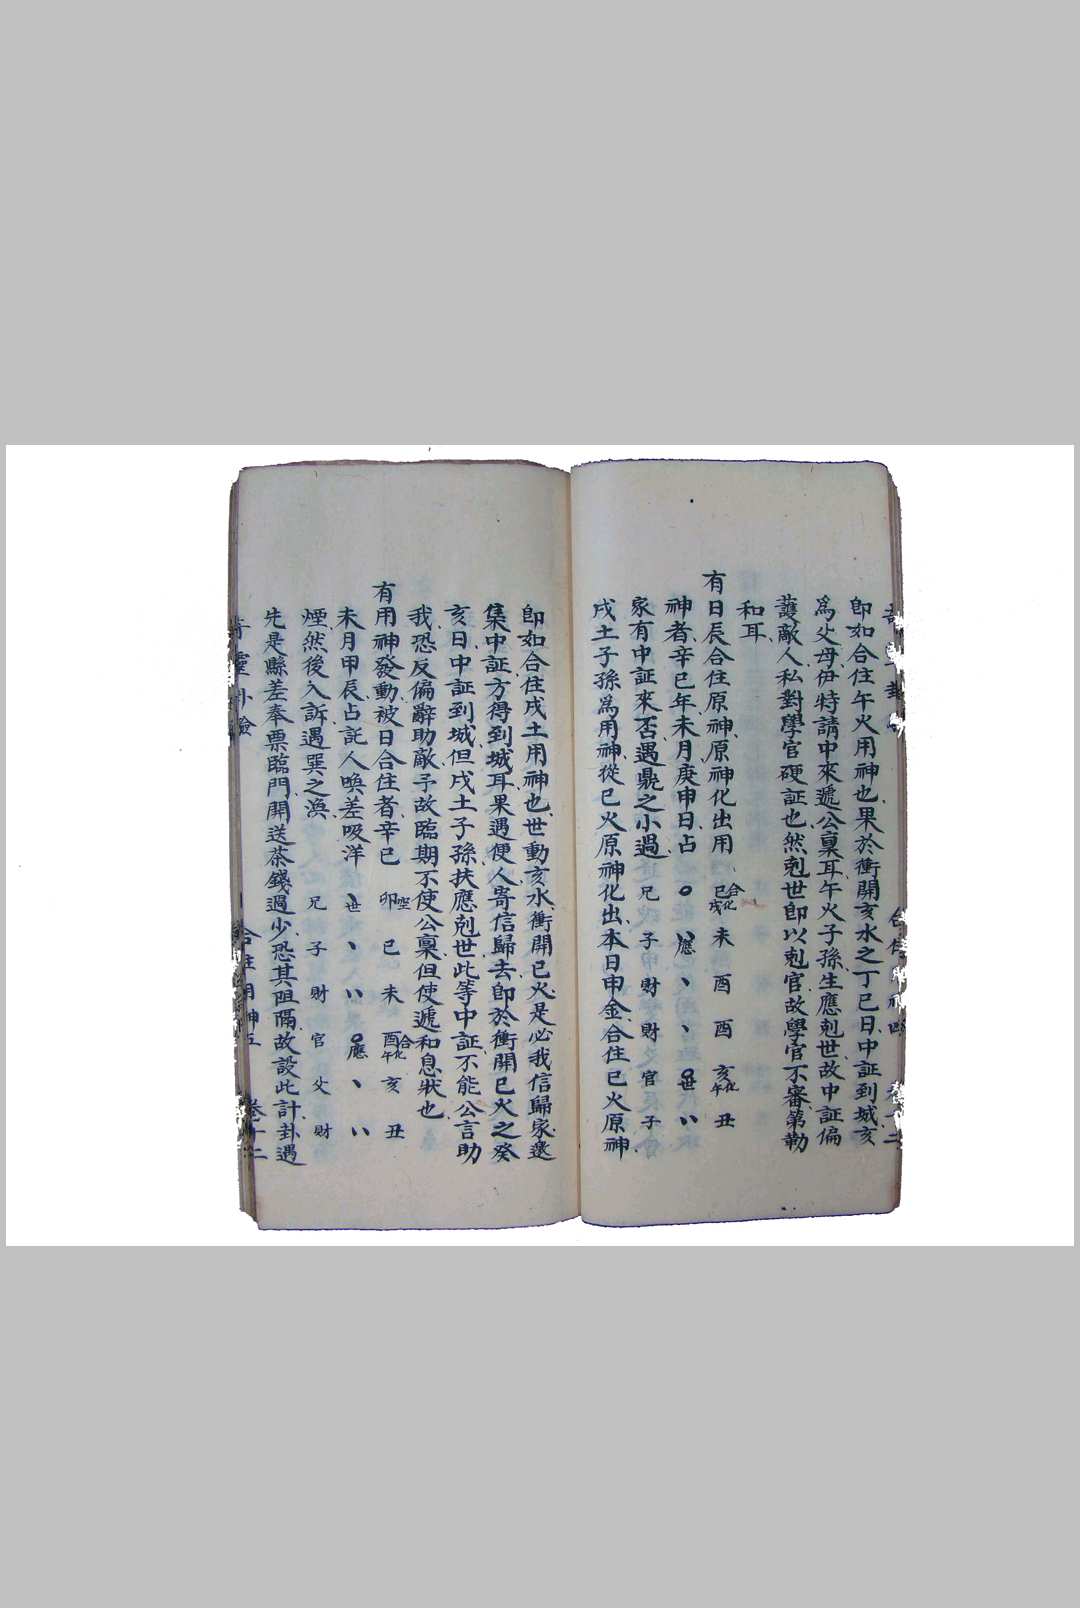 即如合住午火用神也果於衝開亥水之丁巳日中証到城亥
爲父母伊特請中來遞公稟耳午火子孫生應剋世故中証偏
護敵人私對學官硬証也然剋世即以剋官故學官不審第勒
和耳
有日辰合住原神原神化出用 巳戌合化 未 酉 酉 亥午化 丑
神者辛巳年未月庚申日占 應 世
家有中証來否遇鼎之小過 兄 子 財 財 官 子
戌土子孫爲用神從巳火原神化出本日申金合住巳火原神
即如合住戌土用神也世動亥水衝開巳火是必我信歸家選
集中証方得到城耳果遇便人寄信歸去即於衝開巳火之癸
亥日中証到城但戌土子孫扶應剋世此等中証不能公言助
我恐反偏辭助敵予故臨期不使公稟但使遞和息狀也
有用神發動被日合住者辛巳 卯空 巳 未 酉午合化 亥 丑
未月甲辰占託人喚差吸洋 世 應
煙然後入訴遇巽之渙 兄 子 財 官 父 財
先是縣差奉票臨門開送茶錢過少恐其阻隔故設此計卦遇
靈卦驗 合住用神五 卷十二